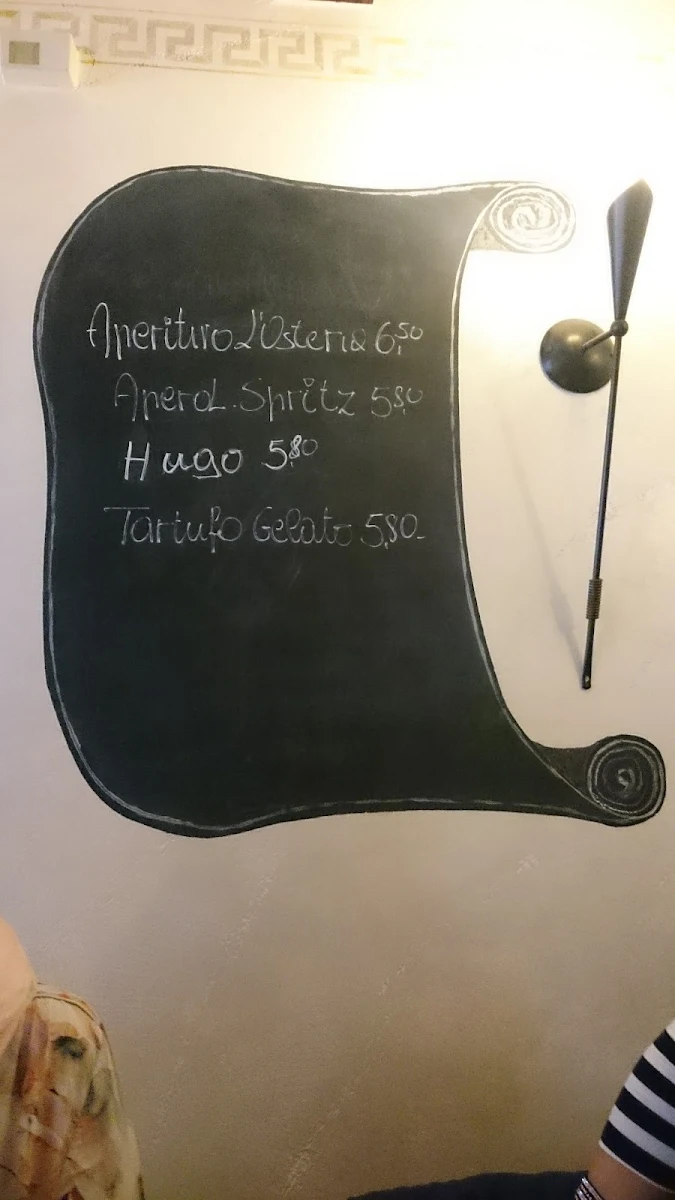 Aperitivo L'Osteria 6,50
Aperol Spritz 5,80
Hugo 5,80
Tartufo Gelato 5,80-